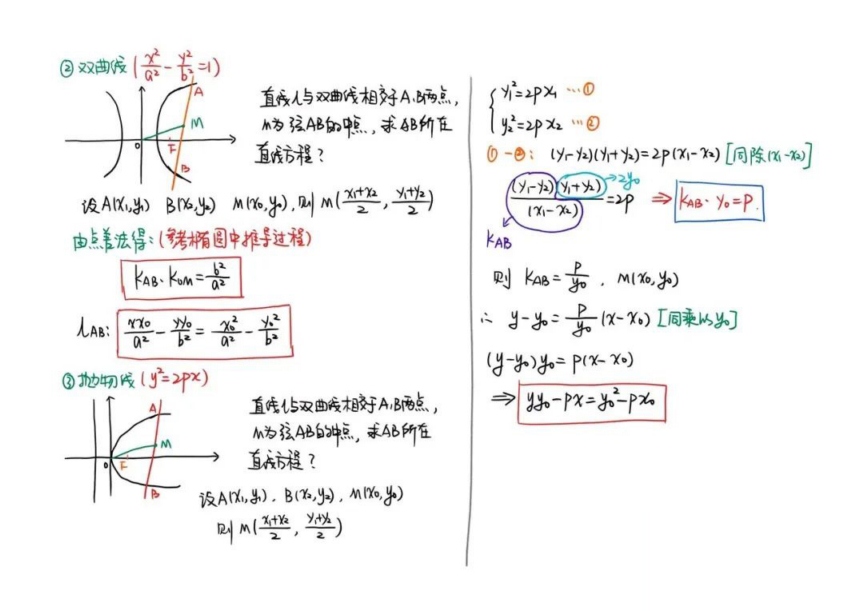 ② 双曲线 (x²/a² - y²/b² = 1)
A
M
O
F
B
直线l与双曲线相交于A,B两点,
M为弦AB的中点,求AB所在
直线方程?
设A(x₁,y₁) B(x₂,y₂) M(x₀,y₀),则M((x₁+x₂)/2, (y₁+y₂)/2)
由点差法得:(参考椭圆中推导过程)
K_AB·K_OM = b²/a²
l_AB: xx₀/a² - yy₀/b² = x₀²/a² - y₀²/b²
③抛物线 (y²=2px)
A
M
O
F
B
直线l与双曲线相交于A,B两点,
M为弦AB的中点,求AB所在
直线方程?
设A(x₁,y₁), B(x₂,y₂), M(x₀,y₀)
则M((x₁+x₂)/2, (y₁+y₂)/2)
y₁²=2px₁ …①
y₂²=2px₂ …②
①-②: (y₁-y₂)(y₁+y₂)=2p(x₁-x₂) [同除(x₁-x₂)]
(y₁-y₂)(y₁+y₂)/(x₁-x₂)=2p ⇒ K_AB·y₀=p.
→2y₀
K_AB
则 K_AB=p/y₀, M(x₀,y₀)
∴ y-y₀=p/y₀(x-x₀) [同乘以y₀]
(y-y₀)y₀=p(x-x₀)
⇒ yy₀-px=y₀²-px₀